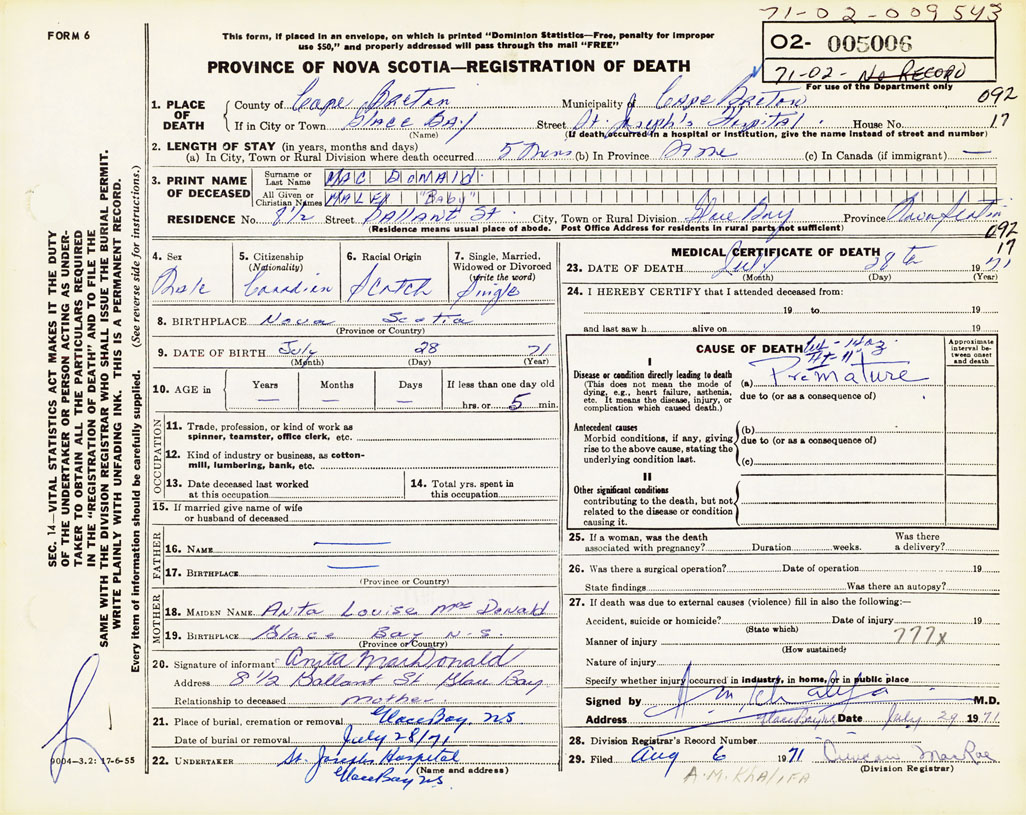 71-02-009543
FORM 6
This form, if placed in an envelope, on which is printed "Dominion Statistics—Free, penalty for improper
use $50," and properly addressed will pass through the mail "FREE"
02- 005006
PROVINCE OF NOVA SCOTIA—REGISTRATION OF DEATH
71-02- No RECORD
For use of the Department only
092
1. PLACE OF DEATH
County of Cape Breton Municipality of Cape Breton
If in City or Town Glace Bay Street St. Joseph's Hospital. House No. 17
(Name) (If death occurred in a hospital or institution, give the name instead of street and number)
2. LENGTH OF STAY (in years, months and days)
(a) In City, Town or Rural Division where death occurred 5 mins (b) In Province Same (c) In Canada (if immigrant) —
3. PRINT NAME OF DECEASED
Surname or Last Name MAC DONALD
All Given or Christian Names MALEX "Baby"
RESIDENCE No. 8½ Street Ballant St. City, Town or Rural Division Glace Bay Province Nova Scotia
(Residence means usual place of abode. Post Office Address for residents in rural parts not sufficient)
092
17
4. Sex
Male
5. Citizenship
(Nationality)
Canadian
6. Racial Origin
Scotch
7. Single, Married,
Widowed or Divorced
(write the word)
Single
8. BIRTHPLACE Nova Scotia
(Province or Country)
9. DATE OF BIRTH July 28 71
(Month) (Day) (Year)
10. AGE in
Years —
Months —
Days —
If less than one day old
hrs. or 5 min.
OCCUPATION
11. Trade, profession, or kind of work as
spinner, teamster, office clerk, etc.
12. Kind of industry or business, as cotton-
mill, lumbering, bank, etc.
13. Date deceased last worked
at this occupation
14. Total yrs. spent in
this occupation
15. If married give name of wife
or husband of deceased
FATHER
16. NAME —
17. BIRTHPLACE —
(Province or Country)
MOTHER
18. MAIDEN NAME Anita Louise MacDonald
19. BIRTHPLACE Glace Bay N.S.
(Province or Country)
20. Signature of informant Anita MacDonald
Address 8½ Ballant St Glace Bay
Relationship to deceased mother
21. Place of burial, cremation or removal Glace Bay NS
Date of burial or removal July 28/71
22. UNDERTAKER St. Josephs Hospital
(Name and address)
Glace Bay NS
MEDICAL CERTIFICATE OF DEATH
23. DATE OF DEATH July 28th 1971
(Month) (Day) (Year)
24. I HEREBY CERTIFY that I attended deceased from:
19 to 19
and last saw h alive on 19
CAUSE OF DEATH
Approximate
interval be-
tween onset
and death
I
Disease or condition directly leading to death
(This does not mean the mode of
dying, e.g., heart failure, asthenia,
etc. It means the disease, injury, or
complication which caused death.)
(a) Premature
due to (or as a consequence of)
Antecedent causes
Morbid conditions, if any, giving
rise to the above cause, stating the
underlying condition last.
(b)
due to (or as a consequence of)
(c)
II
Other significant conditions
contributing to the death, but not
related to the disease or condition
causing it.
25. If a woman, was the death
associated with pregnancy? Duration weeks.
Was there
a delivery?
26. Was there a surgical operation? Date of operation 19
State findings Was there an autopsy?
27. If death was due to external causes (violence) fill in also the following:—
Accident, suicide or homicide? Date of injury 19
(State which)
Manner of injury 777x
(How sustained)
Nature of injury
Specify whether injury occurred in industry, in home, or in public place
Signed by A m Khalifa M.D.
Address Glace Bay NS Date July 29 1971
28. Division Registrar's Record Number
29. Filed Aug 6 1971
(Division Registrar)
A.M. KHALIFA
SEC. 14—VITAL STATISTICS ACT MAKES IT THE DUTY
OF THE UNDERTAKER OR PERSON ACTING AS UNDER-
TAKER TO OBTAIN ALL THE PARTICULARS REQUIRED
IN THE "REGISTRATION OF DEATH" AND TO FILE THE
SAME WITH THE DIVISION REGISTRAR WHO SHALL ISSUE THE BURIAL PERMIT.
WRITE PLAINLY WITH UNFADING INK. THIS IS A PERMANENT RECORD.
Every item of information should be carefully supplied. (See reverse side for instructions.)
9004—3.2: 17-6-55